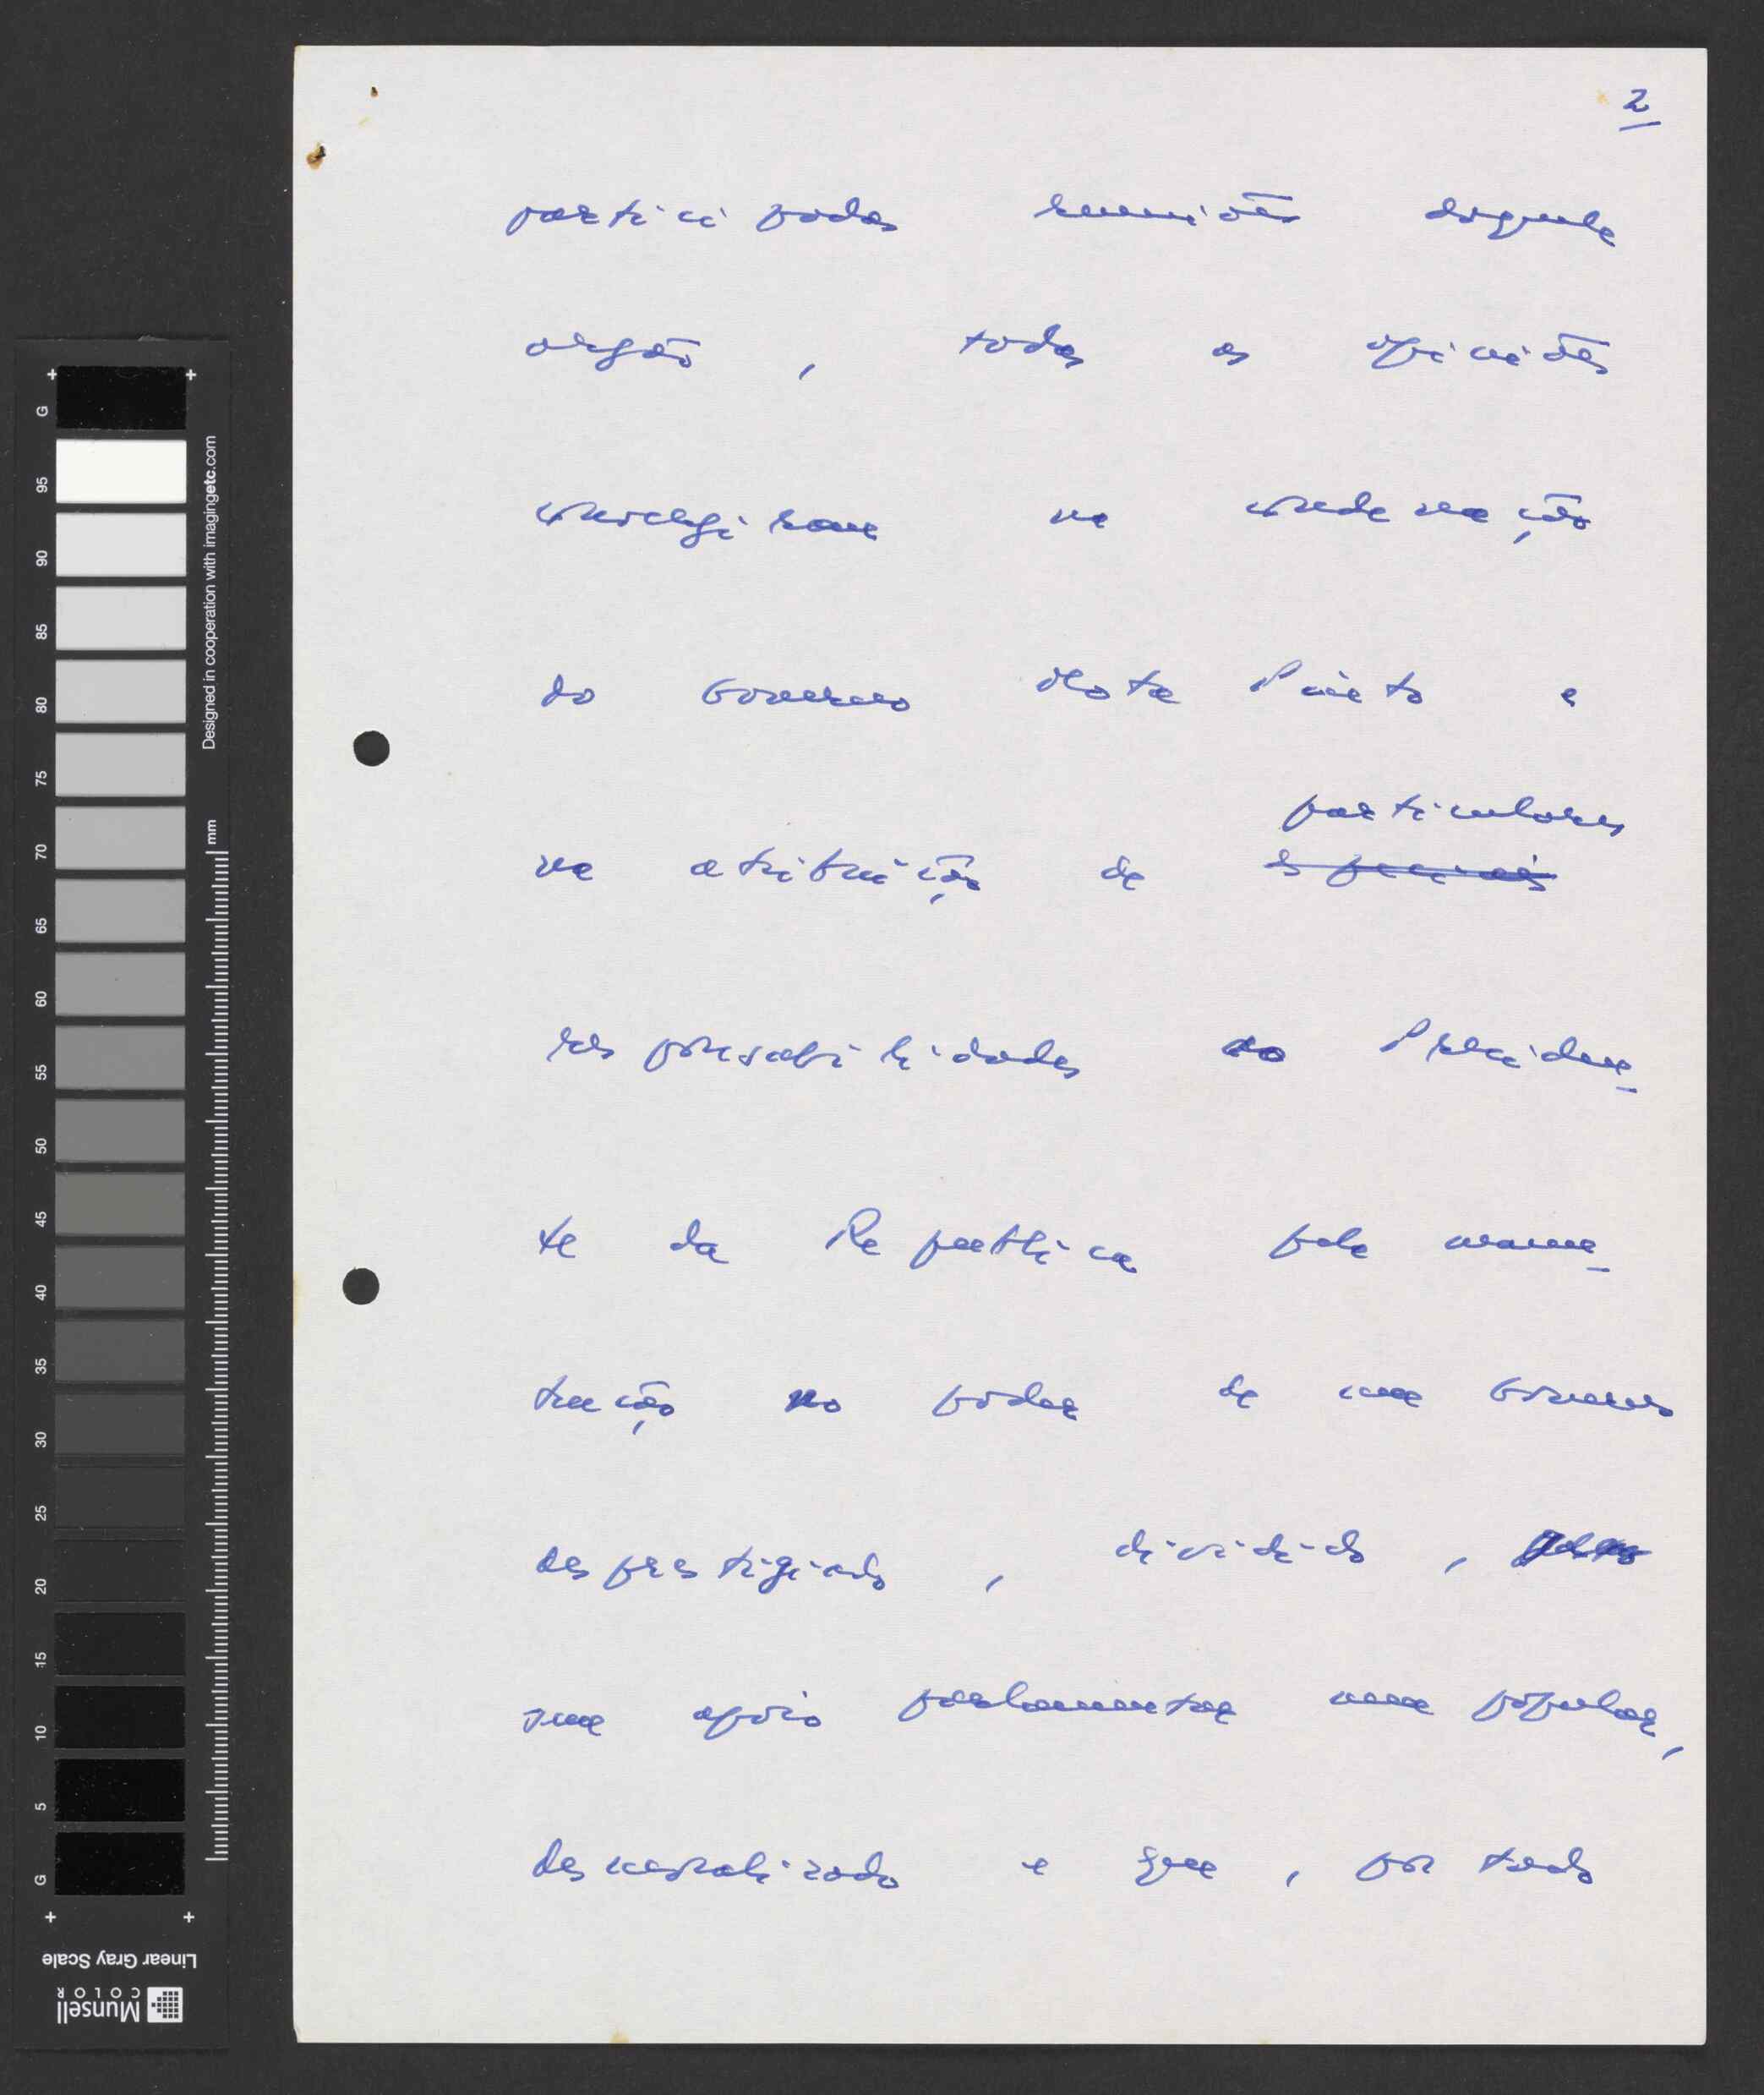 2
participadas reuniões daquele
orgão, todas as opiniões
convergiram na condenação
do Governo Mota Pinto e
particulares
na atribuição de especiais
responsabilidades ao Presiden_
te da Republica pela manu_
tenção no poder de um Governo
desprestigiado, dividido,
sem apoio parlamentar nem popular,
desmoralizado e que, por tudo
G
95
90
85
80
75
70
65
60
55
50
45
40
35
30
25
20
15
10
5
G
Designed in cooperation with imagingetc.com
mm
Linear Gray Scale
Munsell
COLOR